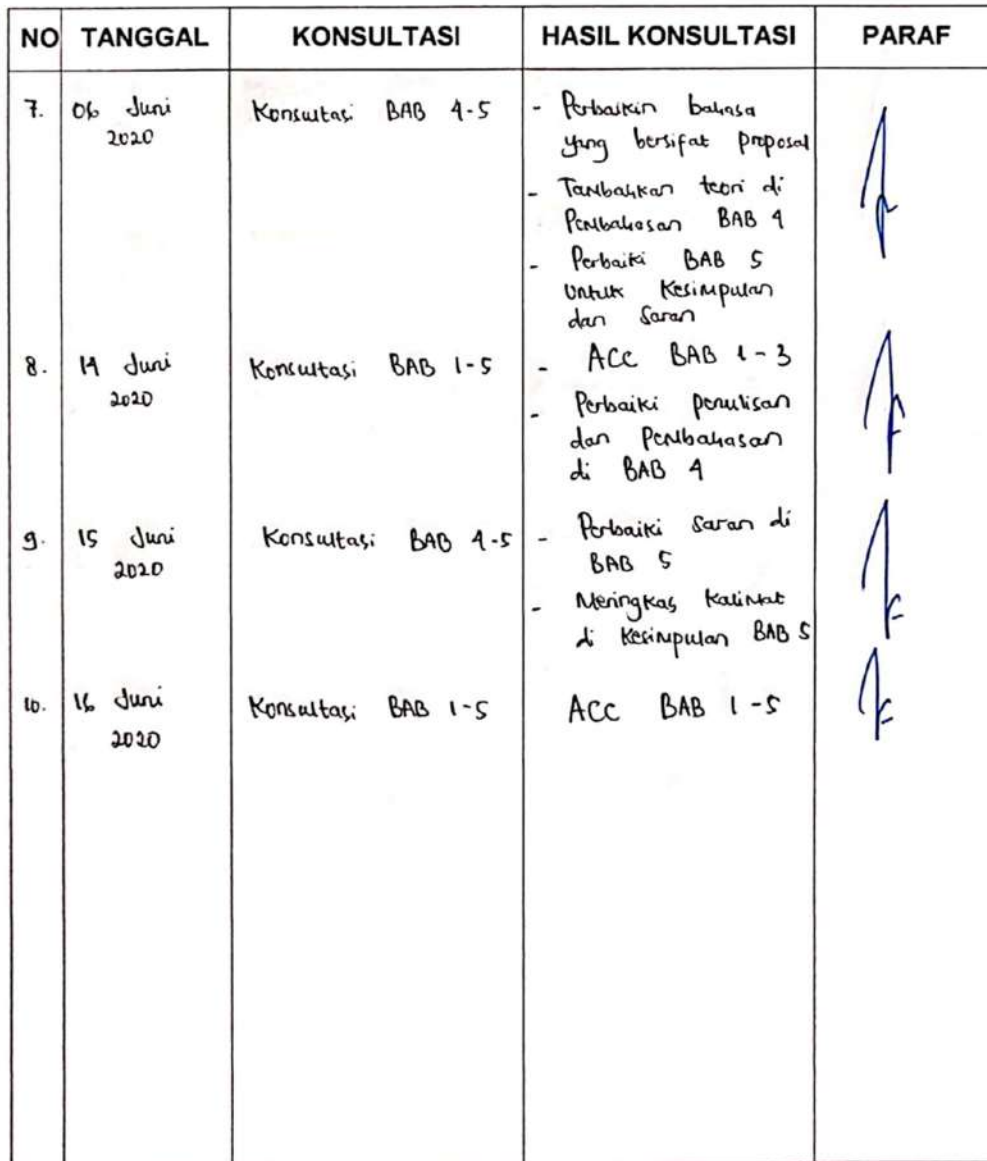 NO TANGGAL KONSULTASI HASIL KONSULTASI PARAF
7. 06 Juni Konsultasi BAB 4-5 - Perbaikin bahasa
2020 yang bersifat proposal
- Tambahkan teori di
Pembahasan BAB 4
- Perbaiki BAB 5
untuk Kesimpulan
dan Saran
8. 14 Juni Konsultasi BAB 1-5 - ACC BAB 1-3
2020 - Perbaiki penulisan
dan Pembahasan
di BAB 4
9. 15 Juni Konsultasi BAB 4-5 - Perbaiki Saran di
2020 BAB 5
- Meringkas Kalimat
di Kesimpulan BAB 5
10. 16 Juni Konsultasi BAB 1-5 ACC BAB 1-5
2020